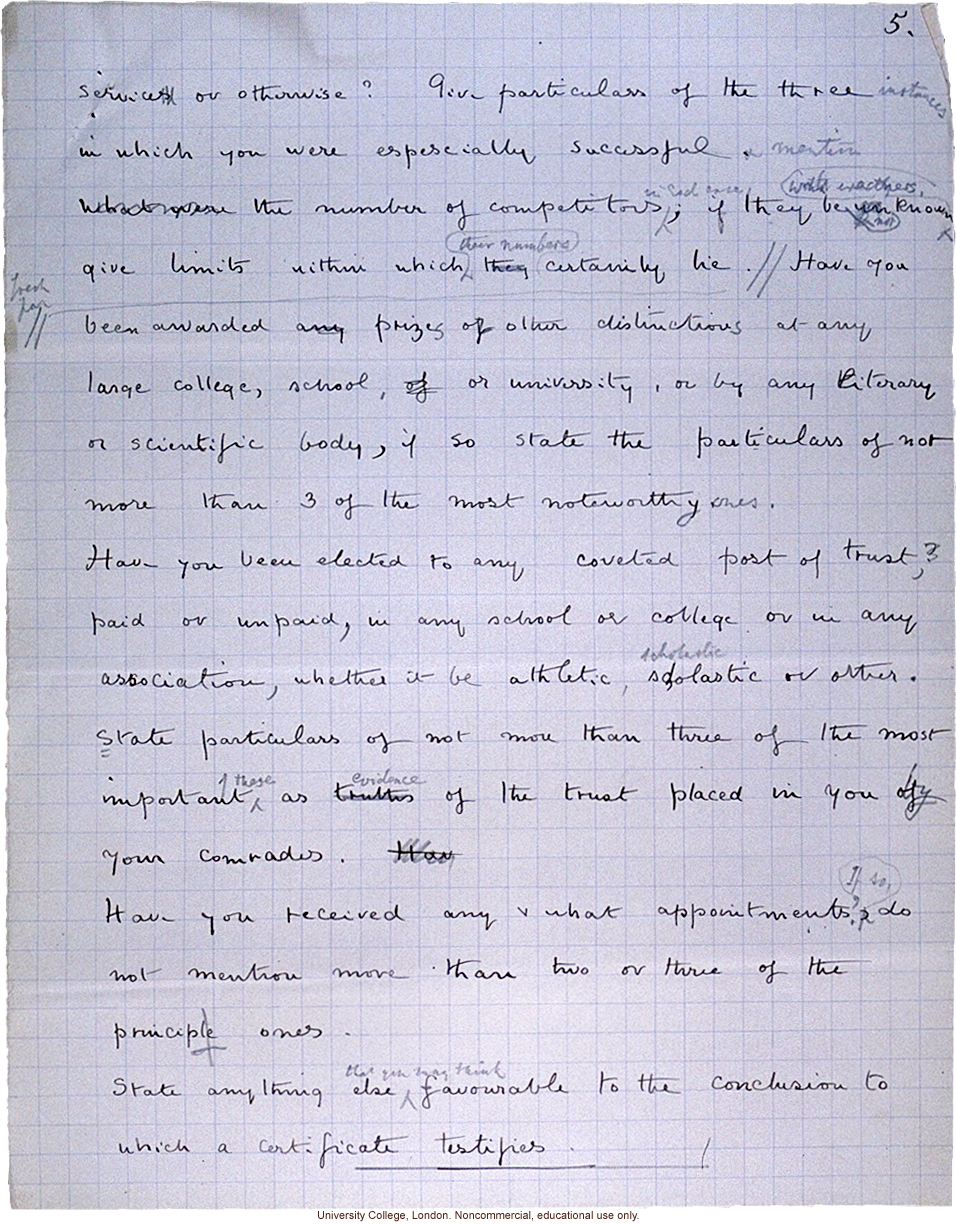 5.
services or otherwise? Give particulars of the three instances
in which you were espescially successful & mention
what were the number of competitors in each case; if they be not known
give limits within which they their numbers certainly lie. // Have you
been awarded any prizes of other distinctions at any
large college, school, of or university, or by any literary
or scientific body, if so state the particulars of not
more than 3 of the most noteworthy ones.
Have you been elected to any coveted post of trust,?
paid or unpaid, in any school or college or in any
association, whether it be athletic, scholastic scholastic or other.
State particulars of not more than three of the most
important of these as truths evidence of the trust placed in you by
your comrades. Hav
Have you received any & what appointments? If so, do
not mention more than two or three of the
principle ones.
State anything else that you may think favourable to the conclusion to
which a certificate testifies.
University College, London. Noncommercial, educational use only.